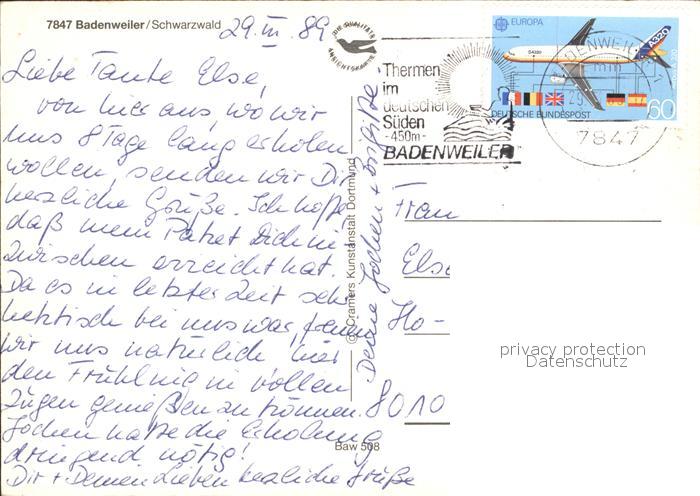 7847 Badenweiler/Schwarzwald
29.III.89
DIE QUALITÄTS
ANSICHTSKARTE
Liebe Tante Else,
von hier aus, wo wir
uns 8 Tage lang erholen
wollen, senden wir Dir
herzliche Grüße. Ich hoffe,
daß mein Paket Dich in-
zwischen erreicht hat.
Da es in letzter Zeit sehr
hektisch bei uns war, freuen
wir uns natürlich, hier
den Frühling in vollen
Zügen genießen zu können.
Jochen hatte die Erholung
dringend nötig!
Dir + Deinen Lieben herzliche Grüße
Deine Jochen + Brigitte
© Cramers Kunstanstalt Dortmund
Baw 508
Thermen
im
deutschen
Süden
-450m-
BADENWEILER
EUROPA
A320
DEUTSCHE BUNDESPOST
60
BADENWEILER
29
7847
Frau
Else
Ho-
8010
privacy protection
Datenschutz